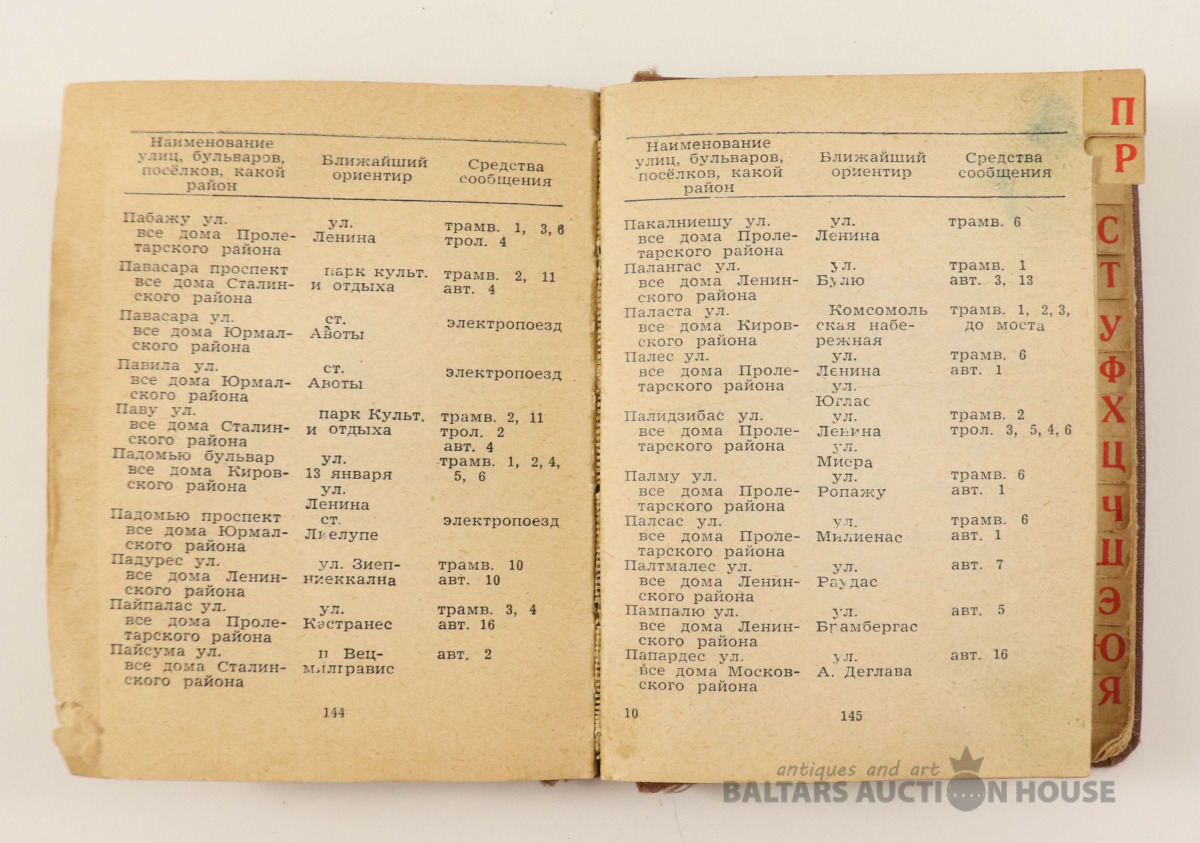 Наименование улиц, бульваров, посёлков, какой район | Ближайший ориентир | Средства сообщения
Пабажу ул. | ул. | трамв. 1, 3, 6
все дома Проле- | Ленина | трол. 4
тарского района
Павасара проспект | парк культ. | трамв. 2, 11
все дома Сталин- | и отдыха | авт. 4
ского района
Павасара ул. | ст. | электропоезд
все дома Юрмал- | Авоты
ского района
Павила ул. | ст. | электропоезд
все дома Юрмал- | Авоты
ского района
Паву ул. | парк Культ. | трамв. 2, 11
все дома Сталин- | и отдыха | трол. 2
ского района | авт. 4
Падомью бульвар | ул. | трамв. 1, 2, 4,
все дома Киров- | 13 января | 5, 6
ского района | ул.
Ленина
Падомью проспект | ст. | электропоезд
все дома Юрмал- | Лиелупе
ского района
Падурес ул. | ул. Зиеп- | трамв. 10
все дома Ленин- | ниеккална | авт. 10
ского района
Пайпалас ул. | ул. | трамв. 3, 4
все дома Проле- | Кастранес | авт. 16
тарского района
Пайсума ул. | п Вец- | авт. 2
все дома Сталин- | милгравис
ского района
144
Наименование улиц, бульваров, посёлков, какой район | Ближайший ориентир | Средства сообщения
Пакалниешу ул. | ул. | трамв. 6
все дома Проле- | Ленина
тарского района
Палангас ул. | ул. | трамв. 1
все дома Ленин- | Булю | авт. 3, 13
ского района
Паласта ул. | Комсомоль | трамв. 1, 2, 3,
все дома Киров- | ская набе- | до моста
ского района | режная
Палес ул. | ул. | трамв. 6
все дома Проле- | Ленина | авт. 1
тарского района | ул.
Юглас
Палидзибас ул. | ул. | трамв. 2
все дома Проле- | Ленина | трол. 3, 5, 4, 6
тарского района | ул.
Миера
Палму ул. | ул. | трамв. 6
все дома Проле- | Ропажу | авт. 1
тарского района
Палсас ул. | ул. | трамв. 6
все дома Проле- | Милиенас | авт. 1
тарского района
Палтмалес ул. | ул. | авт. 7
все дома Ленин- | Раудас
ского района
Пампалю ул. | ул. | авт. 5
все дома Ленин- | Брамбергас
ского района
Папардес ул. | ул. | авт. 16
все дома Москов- | А. Деглава
ского района
10
145
П
Р
С
Т
У
Ф
Х
Ц
Ч
Ш
Э
Ю
Я
antiques and art
BALTARS AUCTION HOUSE